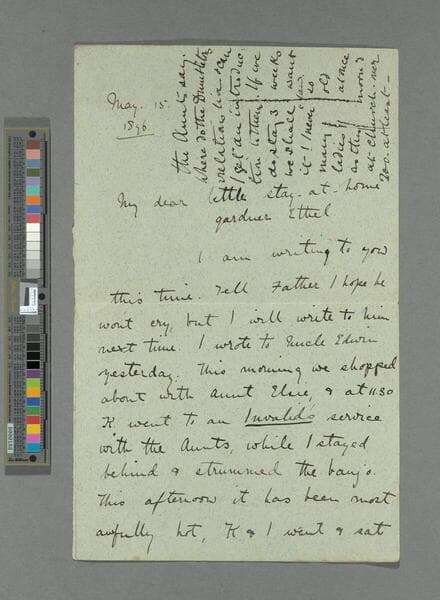 May. 15.
1896
the Aunts say.
Where do the Dimsdales
relations live & can
I get an introduc
tion to them. If we
do stay 3 weeks
we shall want
it! I never saw
so many old
ladies at once
as this morn'g
at Church. never
My dear little stay-at-home
gardner Ethel
I am writing to you
this time. Tell Father I hope he
wont cry, but I will write to him
next time. I wrote to Uncle Edwin
yesterday. This morning we shopped
about with Aunt Elsie, & at 11.30
K went to an Invalid's service
with the Aunts, while I stayed
behind & strummed the banjo.
This afternoon it has been most
awfully hot, K & I went & sat